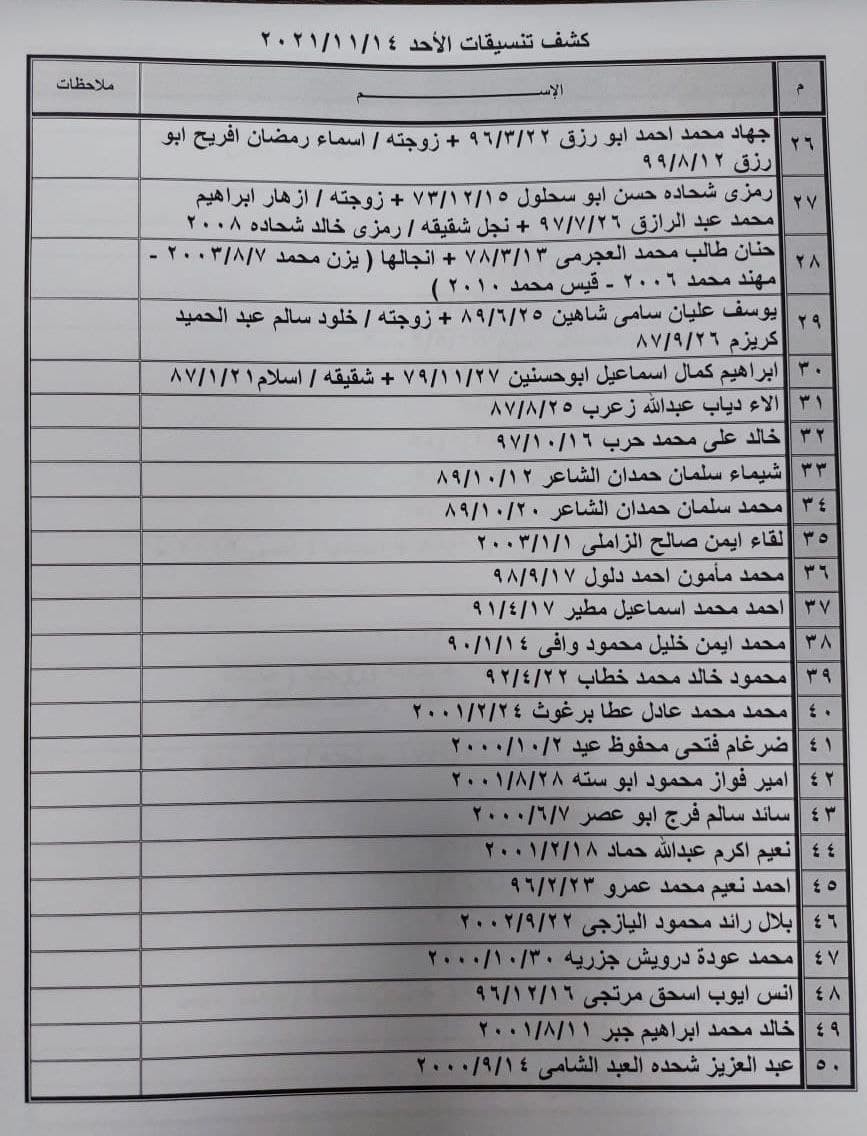 كشف تنسيقات الأحد ٢٠٢١/١١/١٤
م الإســـــــــم ملاحظات
٢٦ جهاد محمد احمد ابو رزق ٩٦/٣/٢٢ + زوجته / اسماء رمضان افريح ابو
رزق ٩٩/٨/١٢
٢٧ رمزى شحاده حسن ابو سحلول ٧٣/١٢/١٥ + زوجته / ازهار ابراهيم
محمد عبد الرازق ٩٧/٧/٢٦ + نجل شقيقه / رمزى خالد شحاده ٢٠٠٨
٢٨ حنان طالب محمد العجرمى ٧٨/٣/١٣ + انجالها ( يزن محمد ٢٠٠٣/٨/٧ -
مهند محمد ٢٠٠٦ - قيس محمد ٢٠١٠ )
٢٩ يوسف عليان سامى شاهين ٨٩/٦/٢٥ + زوجته / خلود سالم عبد الحميد
كريزم ٨٧/٩/٢٦
٣٠ ابراهيم كمال اسماعيل ابوحسنين ٧٩/١١/٢٧ + شقيقه / اسلام ٨٧/١/٢١
٣١ الاء دياب عبدالله زعرب ٨٧/٨/٢٥
٣٢ خالد على محمد حرب ٩٧/١٠/١٦
٣٣ شيماء سلمان حمدان الشاعر ٨٩/١٠/١٢
٣٤ محمد سلمان حمدان الشاعر ٨٩/١٠/٢٠
٣٥ لقاء ايمن صالح الزاملى ٢٠٠٣/١/١
٣٦ محمد مأمون احمد دلول ٩٨/٩/١٧
٣٧ احمد محمد اسماعيل مطير ٩١/٤/١٧
٣٨ محمد ايمن خليل محمود وافى ٩٠/١/١٤
٣٩ محمود خالد محمد خطاب ٩٢/٤/٢٢
٤٠ محمد محمد عادل عطا برغوث ٢٠٠١/٢/٢٤
٤١ ضرغام فتحى محفوظ عيد ٢٠٠٠/١٠/٢
٤٢ امير فواز محمود ابو سته ٢٠٠١/٨/٢٨
٤٣ سائد سالم فرج ابو عصر ٢٠٠٠/٦/٧
٤٤ نعيم اكرم عبدالله حماد ٢٠٠١/٢/١٨
٤٥ احمد نعيم محمد عمرو ٩٦/٢/٢٣
٤٦ بلال رائد محمود اليازجى ٢٠٠٢/٩/٢٢
٤٧ محمد عودة درويش جزريه ٢٠٠٠/١٠/٣٠
٤٨ انس ايوب اسحق مرتجى ٩٦/١٢/١٦
٤٩ خالد محمد ابراهيم جبر ٢٠٠١/٨/١١
٥٠ عبد العزيز شحده العبد الشامى ٢٠٠٠/٩/١٤